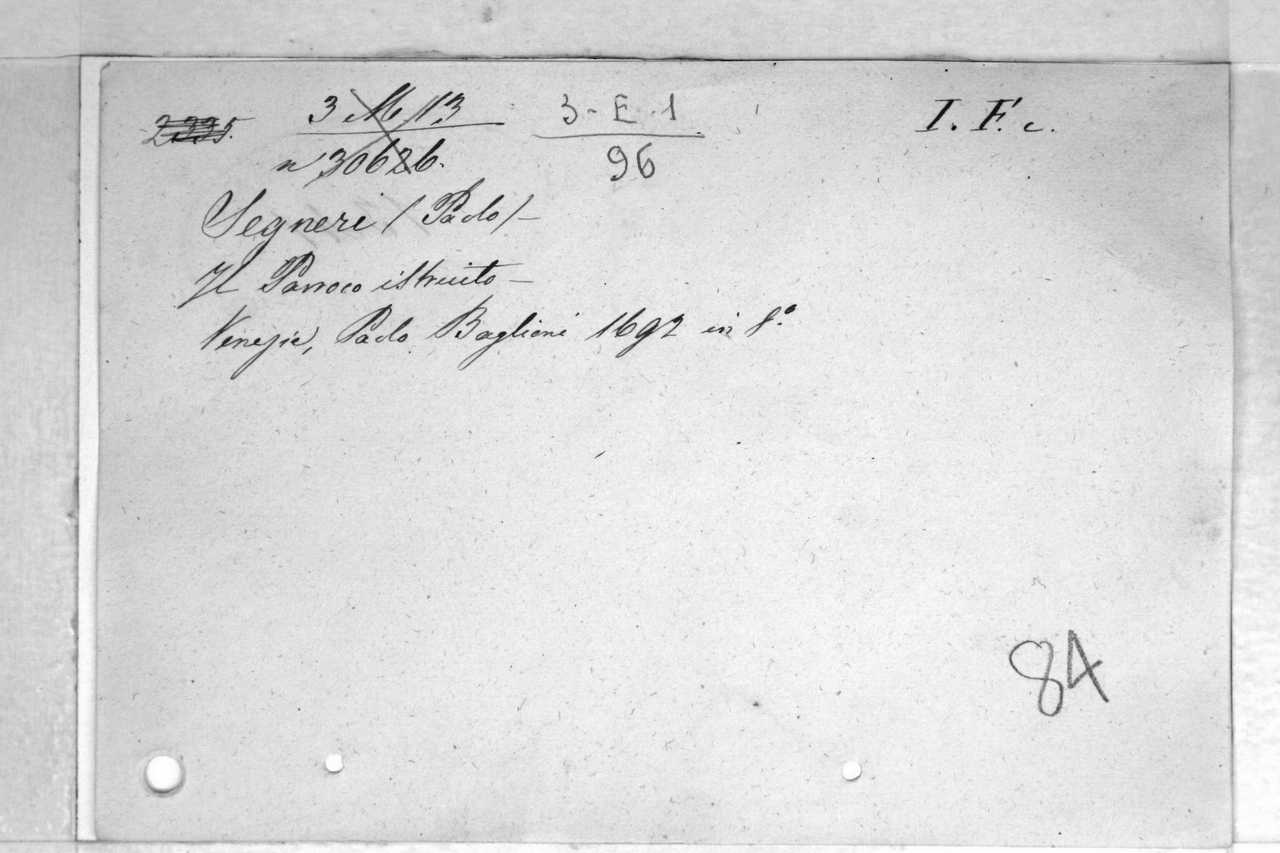 2335. 3 M 113 3-E.1 I. F. c.
n 30626. 96
Segneri (Paolo) -
Il Parroco istruito -
Venezia, Paolo Baglioni 1692 in 8.°
84